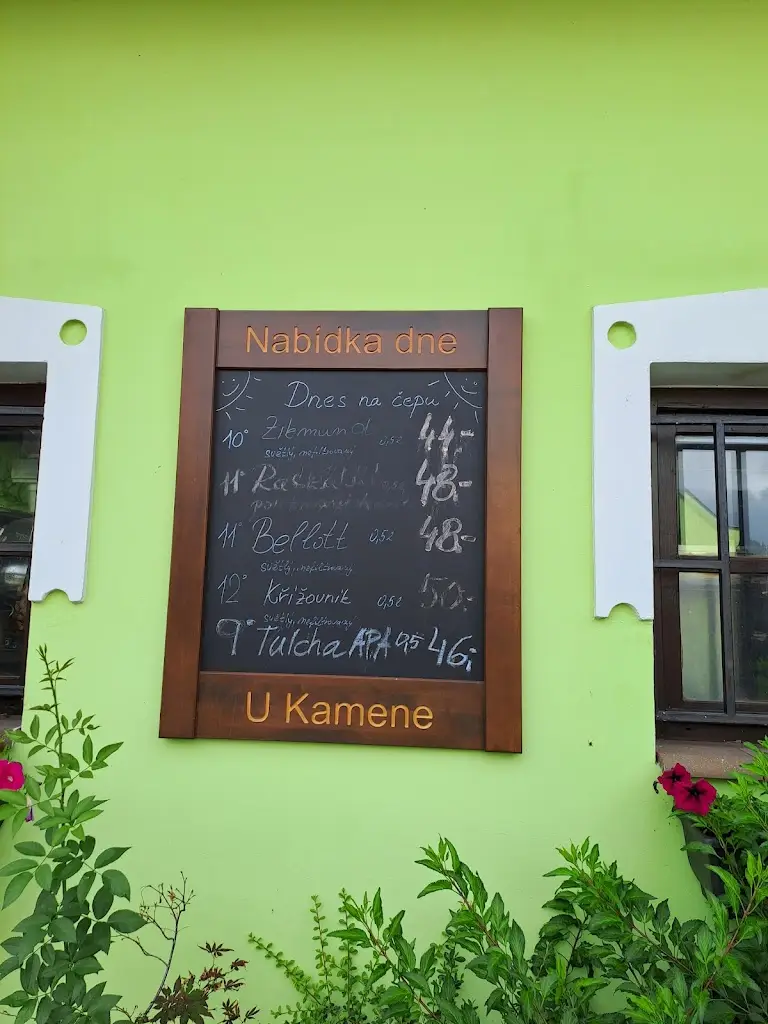 Nabídka dne
Dnes na čepu
10° 0,5l 44,-
světlý, nefiltrovaný
11° 48,-
11° Bellott 0,5l 48,-
světlý, nefiltrovaný
12° Křižovnik 0,5l 50,-
světlý, nefiltrovaný
9° Tulcha APA 0,5 46,-
U Kamene